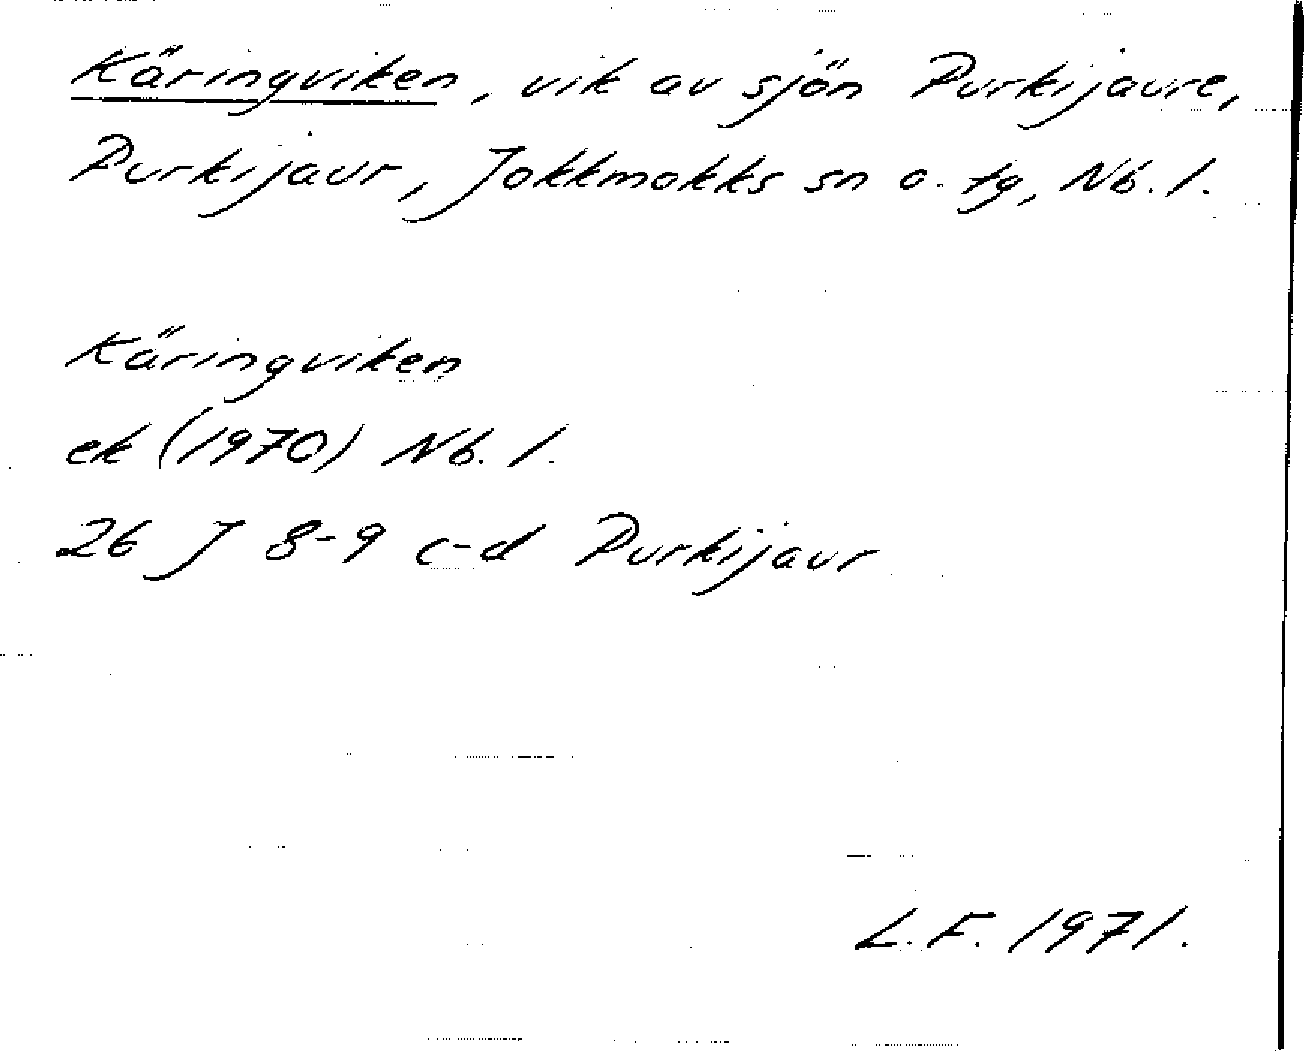 Käringviken, vik av sjön Purkijaure,
Purkijaur, Jokkmokks sn o. tg, Nb. l.
Käringviken
ek (1970) Nb. l.
26 J 8-9 c-d Purkijaur
L.F. 1971.